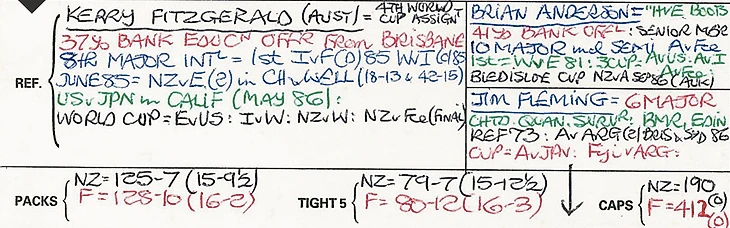 KERRY FITZGERALD (AUST) = 4TH WORLD CUP ASSIGNT
37yo BANK EDUCN OFFR FROM BRISBANE
8TH MAJOR INTL = 1st IvF(D)85 WvI
JUNE 85 = NZvE(2) in CH, WELL (18-13 & 42-15)
REF.
USvJPN in CALIF (MAY 86):
WORLD CUP = EvUS: IvW: NZvW: NZvFce (FINAL)
BRIAN ANDERSON = "HVE BOOTS
41yo BANK OFFL: SENIOR
10 MAJOR incl SEMI AvFce
1st = WvE 81: 3CUP = AvUS: AvI
AvFce:
BLEDISLOE CUP NZvA SEP 86 (AUK)
JIM FLEMING = 6 MAJOR
CHTD. QUAN. SURVR: BMR, EDIN
REF 73: AvARG(2) BRIS & SYD 86
CUP = AvJPN: FIJIvARG:
PACKS
NZ = 125-7 (15-9½)
F = 128-10 (16-2)
TIGHT 5
NZ = 79-7 (15-12½)
F = 80-12 (16-3)
CAPS
NZ = 190 (0)
F = 412 (0)